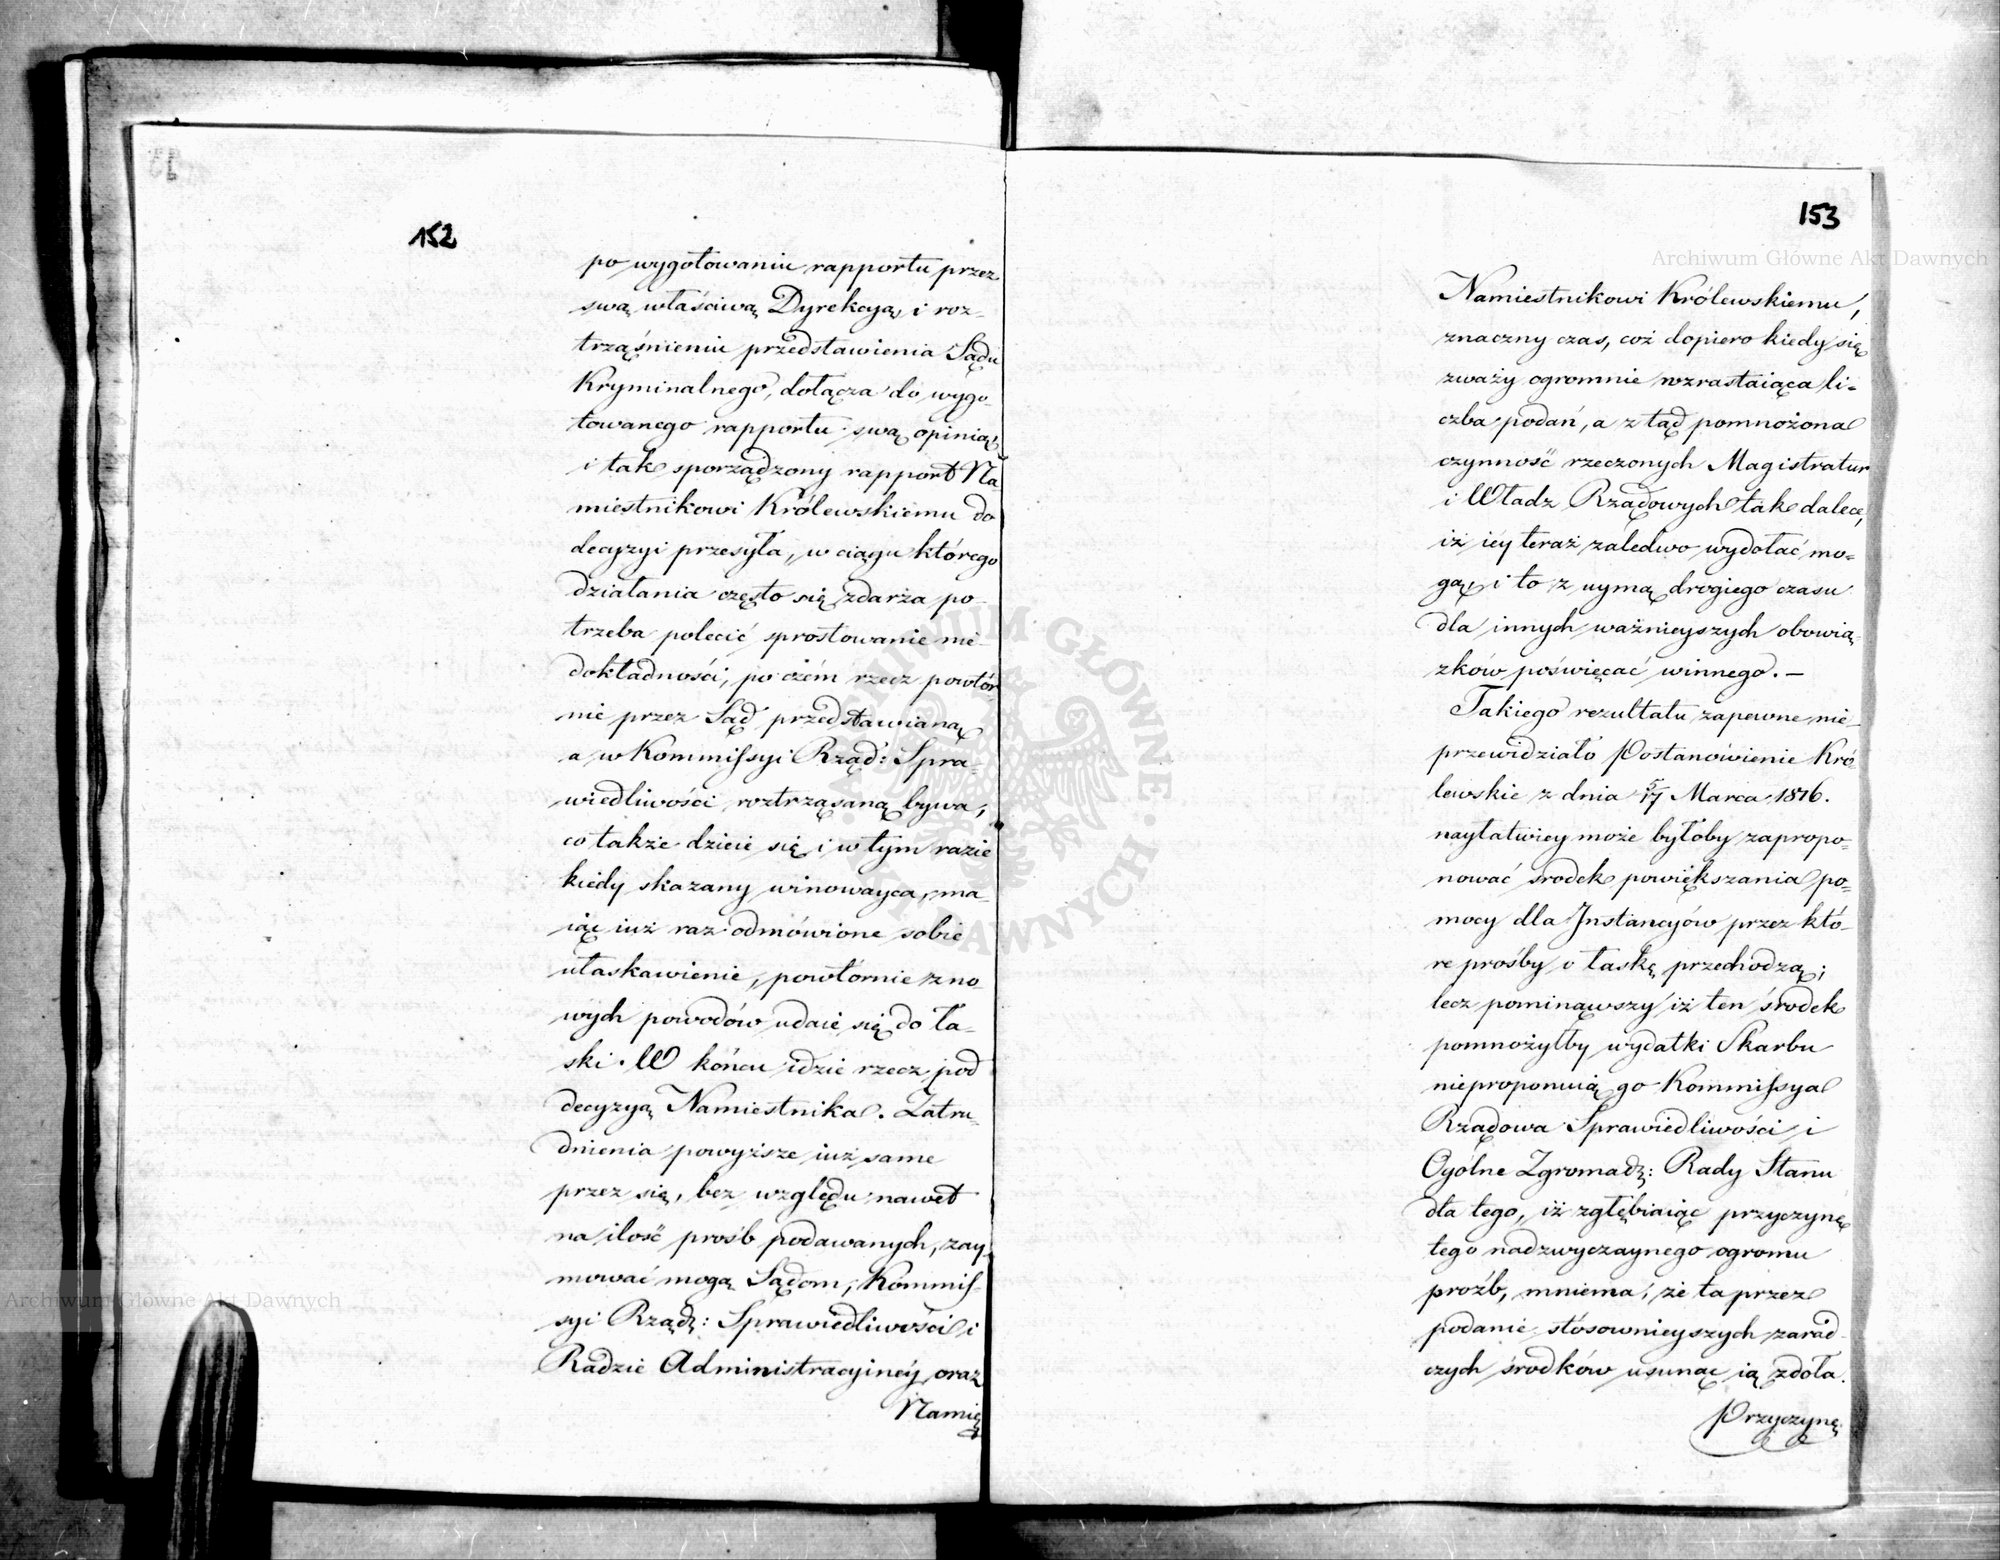 152
po wygotowaniu rapportu przez
swą właściwą Dyrekcyą, i roz-
trząśnieniu przedstawienia Sądu
Kryminalnego, dołącza do wygo-
towanego rapportu swą opinią,
i tak sporządzony rapport Na
miestnikowi Królewskiemu do
decyzyi przesyła, w ciągu którego
działania często się zdarza po-
trzeba polecić sprostowanie nie-
dokładności, po czém rzecz powtór
nie przez Sąd przedstawianą
a w Kommissyi Rząd: Spra-
wiedliwości roztrząsaną bywa,
co także dzieie się i w tym razie
kiedy skazany winowayca, ma-
iąc iuż raz odmówione sobie
ułaskawienie, powtórnie z no-
wych powodów udaie się do ła-
ski. W końcu idzie rzecz pod
decyzyą Namiestnika. Zatru-
dnienia powyższe iuż same
przez się, bez względu nawet
na ilość prośb podawanych, zay-
mować mogą Sądom, Kommis-
syi Rządz: Sprawiedliwości i
Radzie Administracyinéy oraz
Namie
153
Namiestnikowi Królewskiemu,
znaczny czas, coż dopiero kiedy się
zważy ogromnie wzrastaiąca li-
czba podań, a z tąd pomnożona
czynność rzeczonych Magistratur
i Władz Rządowych tak dalece,
iż iéy teraz zaledwo wydołać mo-
gą, i to z uymą drogiego czasu
dla innych ważnieyszych obowią-
zków poświęcać winnego. –
Takiego rezultatu zapewne nie-
przewidziało Postanowienie Kró-
lewskie z dnia 5/17 Marca 1816.
nayłatwiey może byłoby zapropo-
nować środek powiększania po-
mocy dla Instancyów przez któ-
re prośby o łaskę przechodzą;
lecz pominąwszy iż ten środek
pomnożyłby wydatki Skarbu
nieproponuią go Kommissya
Rządowa Sprawiedliwości i
Ogólne Zgromadz: Rady Stanu
dla tego, iż zgłębiaiąc przyczynę
tego nadzwyczaynego ogromu
prożb, mniema, że ta przez
podanie stósownieyszych zarad-
czych środków usunąć ią zdoła.
Przyczynę